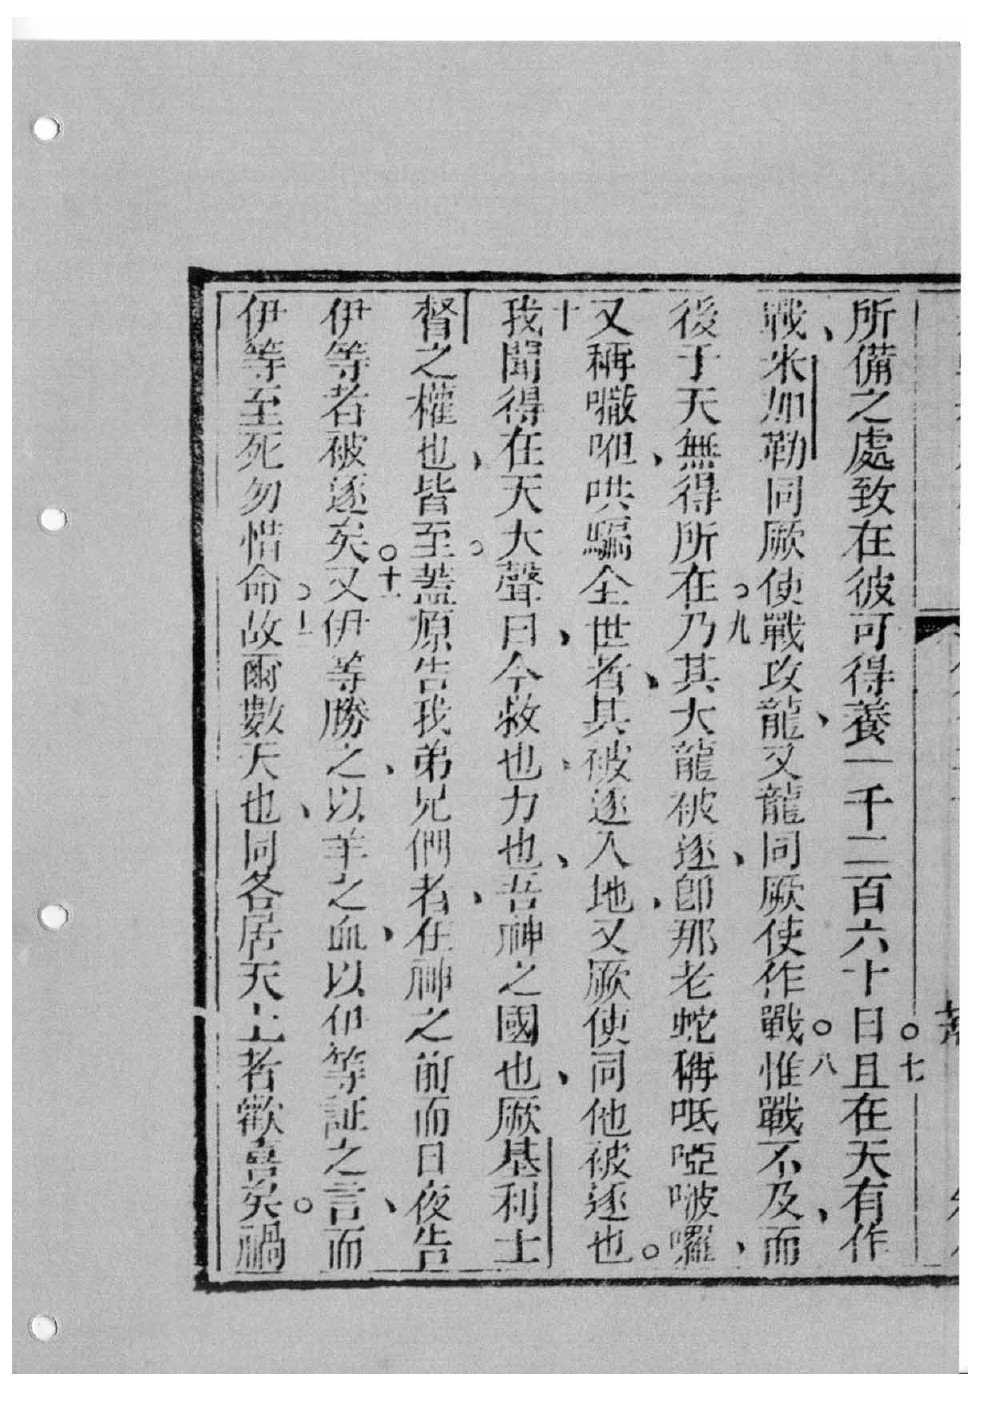 所備之處致在彼可得養一千二百六十日。七且在天有作
戰、米加勒同厥使戰攻龍、又龍同厥使作戰。八惟戰不及、而
後于天無得所在。九乃其大龍被逐、即那老蛇稱呧啞啵囉、
又稱𠾀呾、哄騙全世者、其被逐入地、又厥使同他被逐也。
十我聞得在天大聲曰、今救也、力也、吾神之國也、厥基利士
督之權也、皆至。蓋原告我弟兄們者、在神之前而日夜告
伊等者破逐矣。十一又伊等勝之、以羊之血、以伊等証之言、而
伊等至死勿惜命。故爾數天也、同各居天上者歡喜矣。禍